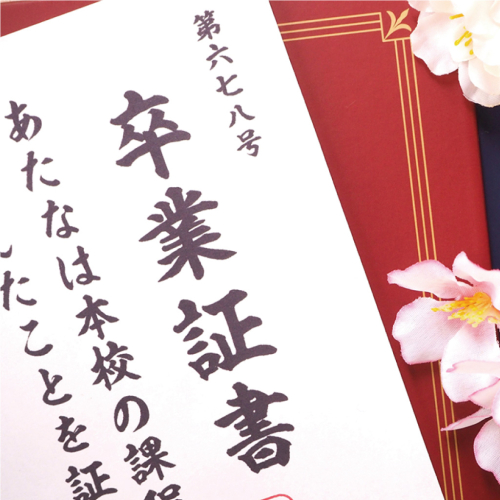 第六七八号
卒業証書
あたなは本校の課
したことを証